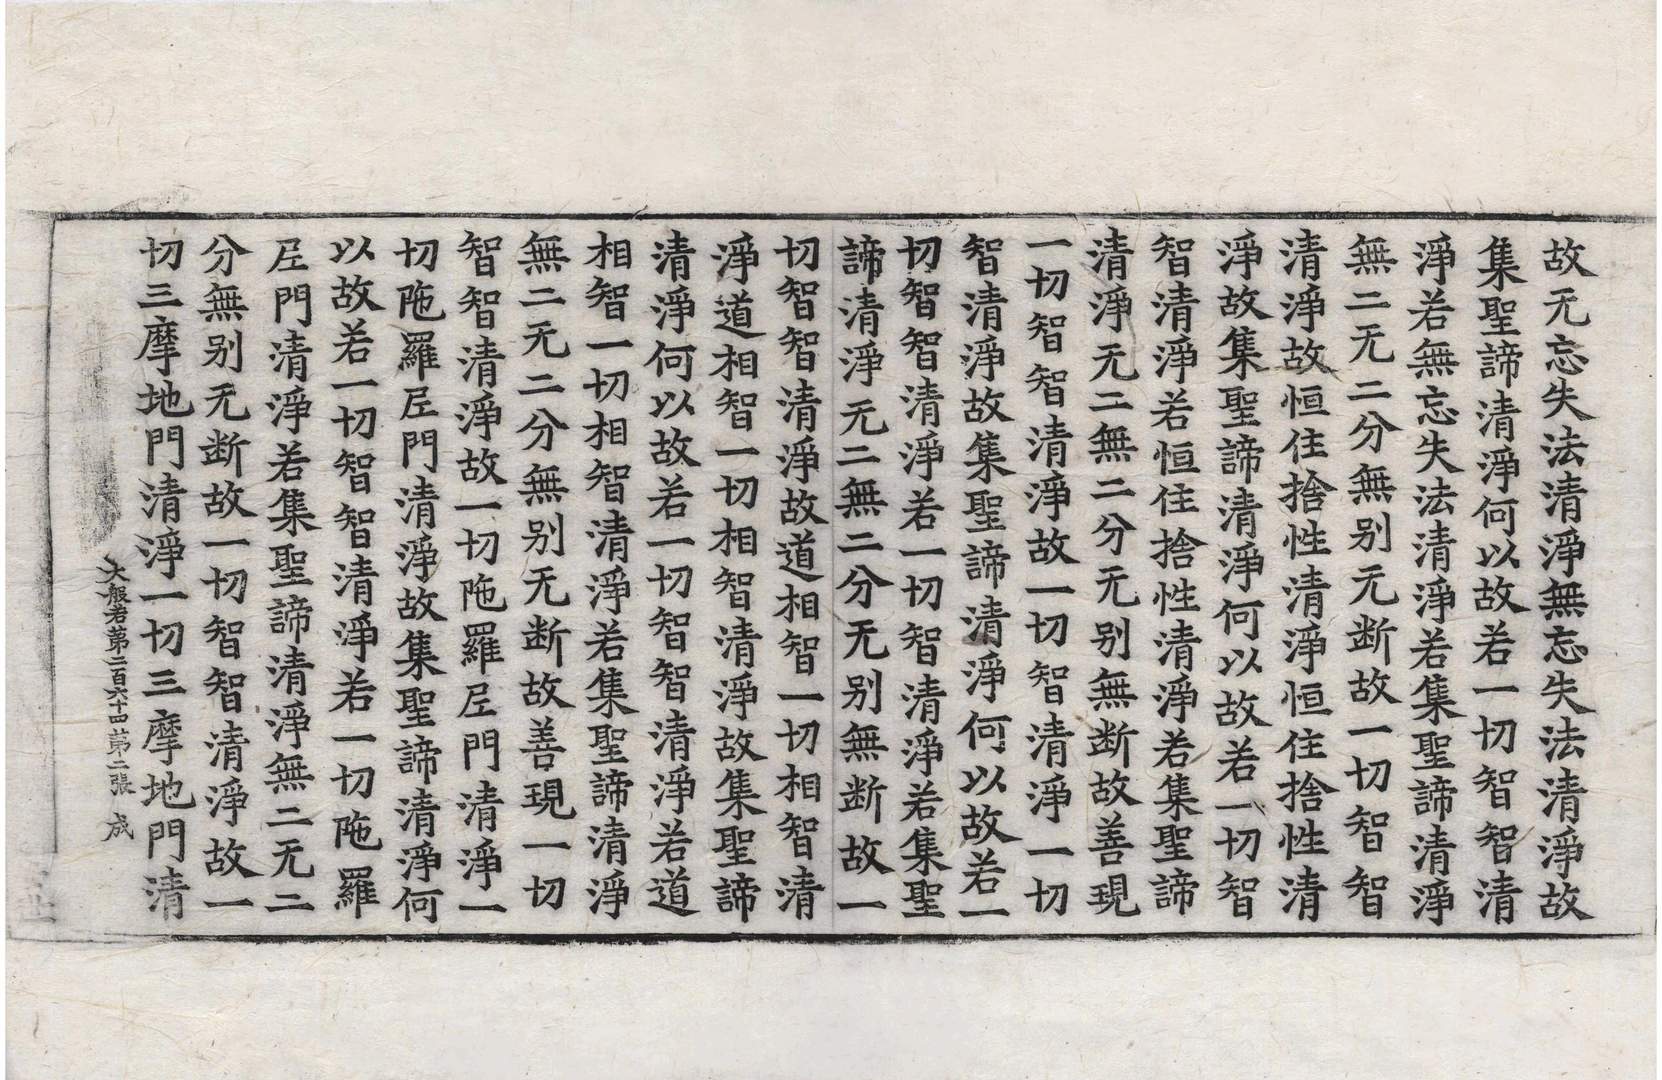 故无忘失法清淨無忘失法清淨故
集聖諦清淨何以故若一切智智清
淨若無忘失法清淨若集聖諦清淨
無二无二分無別无断故一切智智
清淨故恒住捨性清淨恒住捨性清
淨故集聖諦清淨何以故若一切智
智清淨若恒住捨性清淨若集聖諦
清淨无二無二分无別無断故善現
一切智智清淨故一切智智清淨一切
智清淨故集聖諦清淨何以故若一
切智智清淨若一切智清淨若集聖
諦清淨无二無二分无別無断故一
切智智清淨故道相智一切相智清
淨道相智一切相智清淨故集聖諦
清淨何以故若一切智智清淨若道
相智一切相智清淨若集聖諦清淨
無二无二分無別无断故善現一切
智智清淨故一切陁羅尼門清淨一
切陁羅尼門清淨故集聖諦清淨何
以故若一切智智清淨若一切陁羅
尼門清淨若集聖諦清淨無二无二
分無別无断故一切智智清淨故一
切三摩地門清淨一切三摩地門清
大般若第二百六十四第二張 成